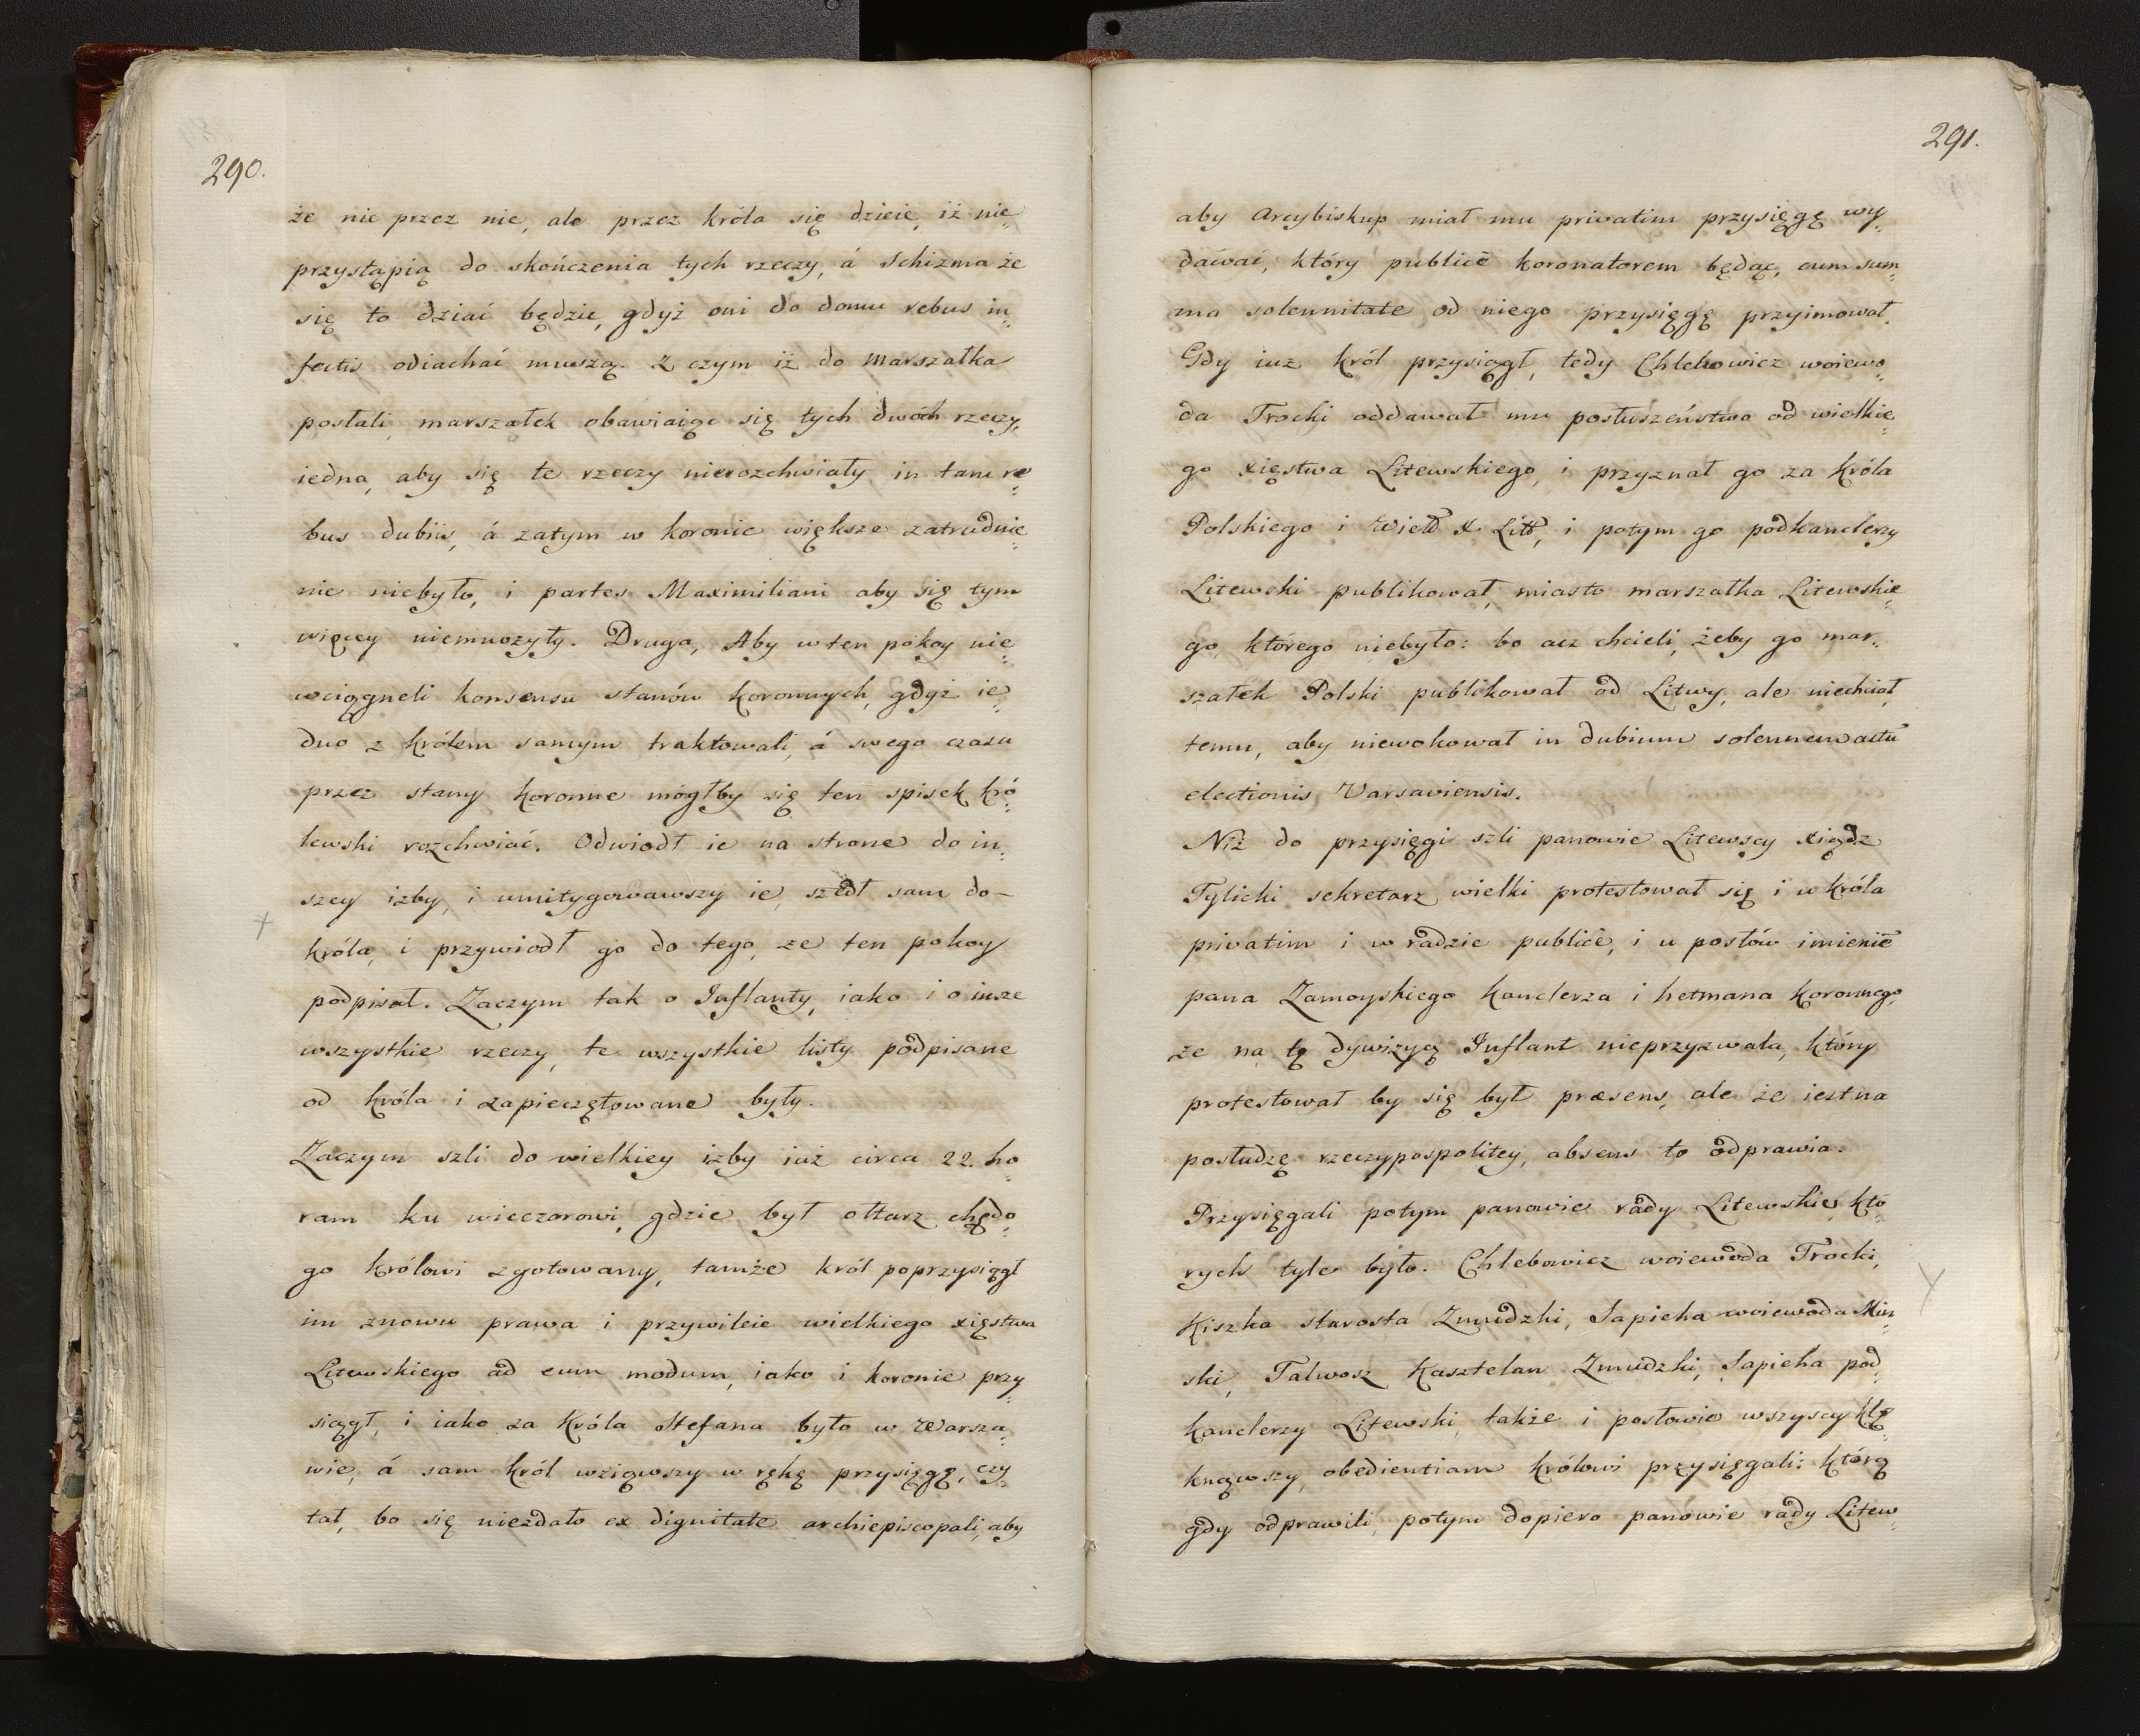 290.
że nie przez nie, ale przez króla się dzieie, iż nie„
przystąpią do skończenia tych rzeczy, á Schizma że
się to dziać będzie, gdyż oni do domu rebus in„
fectis odiachać muszą. Z czym iż do Marszałka
posłali, marszałek obawiaiąc się tych dwóch rzeczy,
iedna, aby się te rzeczy nierozchwiały in tam re„
bus dubiis, á zatym w koronie większe zatrudnie„
nie niebyło, i partes Maximiliani aby się tym
więcey niemnożyły. Druga, Aby w ten pokoy nie„
wciągneli konsensu stanów koronnych, gdyż ie„
dno z królem samym traktowali, á swego czasu
przez stany koronne mógłby się ten spisek kró„
lewski rozchwiać. Odwiodł ie na strone do in„
szey izby, i umitygowawszy ie, szedł sam do-
króla, i przywiodł go do tego, że ten pokoy
podpisał. Zaczym tak o Inflanty, iako i o insze
wszystkie rzeczy, te wszystkie listy podpisane
od króla i zapieczętowane były.
Zaczym szli do wielkiey izby iuż circa 22. ho„
ram ku wieczorowi, gdzie był ołtarz chędo„
go królowi zgotowany, tamże król poprzysiągł
im znowu prawa i przywileie wielkiego xięstwa
Litewskiego ad eum modum, iako i koronie przy„
siągł, i iako za Króla Stefana było w Warsza„
wie, á sam król wziąwszy w rękę przysięgę, czy„
tał, bo się niezdało ex dignitate archiepiscopali, aby
291.
aby Arcybiskup miał mu privatim przysięgę wy„
dawać, który publicè koronatorem będąc, cum sum„
ma solennitate od niego przysięgę przyimował.
Gdy iuż król przysiągł, tedy Chlebowicz woiewo„
da Trocki oddawał mu posłuszeństwo od wielkie„
go xięstwa Litewskiego, i przyznał go za króla
Polskiego i Wielł X Litt, i potym go podkanclerzy
Litewski publikował, miasto marszałka Litewskie„
go, którego niebyło: bo acz chcieli, żeby go mar„
szałek Polski publikował od Litwy, ale niechciał
temu, aby niewokował in dubium solennem actū
electionis Varsaviensis.
Niż do przysięgi szli panowie Litewscy xiądz
Tylicki sekretarz wielki protestował się i u króla
privatim i w radzie publicè, i u posłów imieniē
pana Zamoyskiego kanclerza i hetmana koronnego,
że na tę dywizyą Inflant nieprzyzwala, który
protestował by się był præsens, ale że iest na
posłudzę rzeczypospolitey, absens to odprawia.
Przysięgali potym panowie rady Litewskie, któ„
rych tyle było. Chlebowicz woiewoda Trocki,
Kiszka starosta Zmudzki, Sapieha woiewoda Min„
ski, Talwosz Kasztelan Zmudzki, Sapieha pod„
kanclerzy Litewski, także i posłowie wszyscy klę„
knąwszy, obedientiam królowi przysięgali: którą
gdy odprawili, potym dopiero panowie rady Litew„